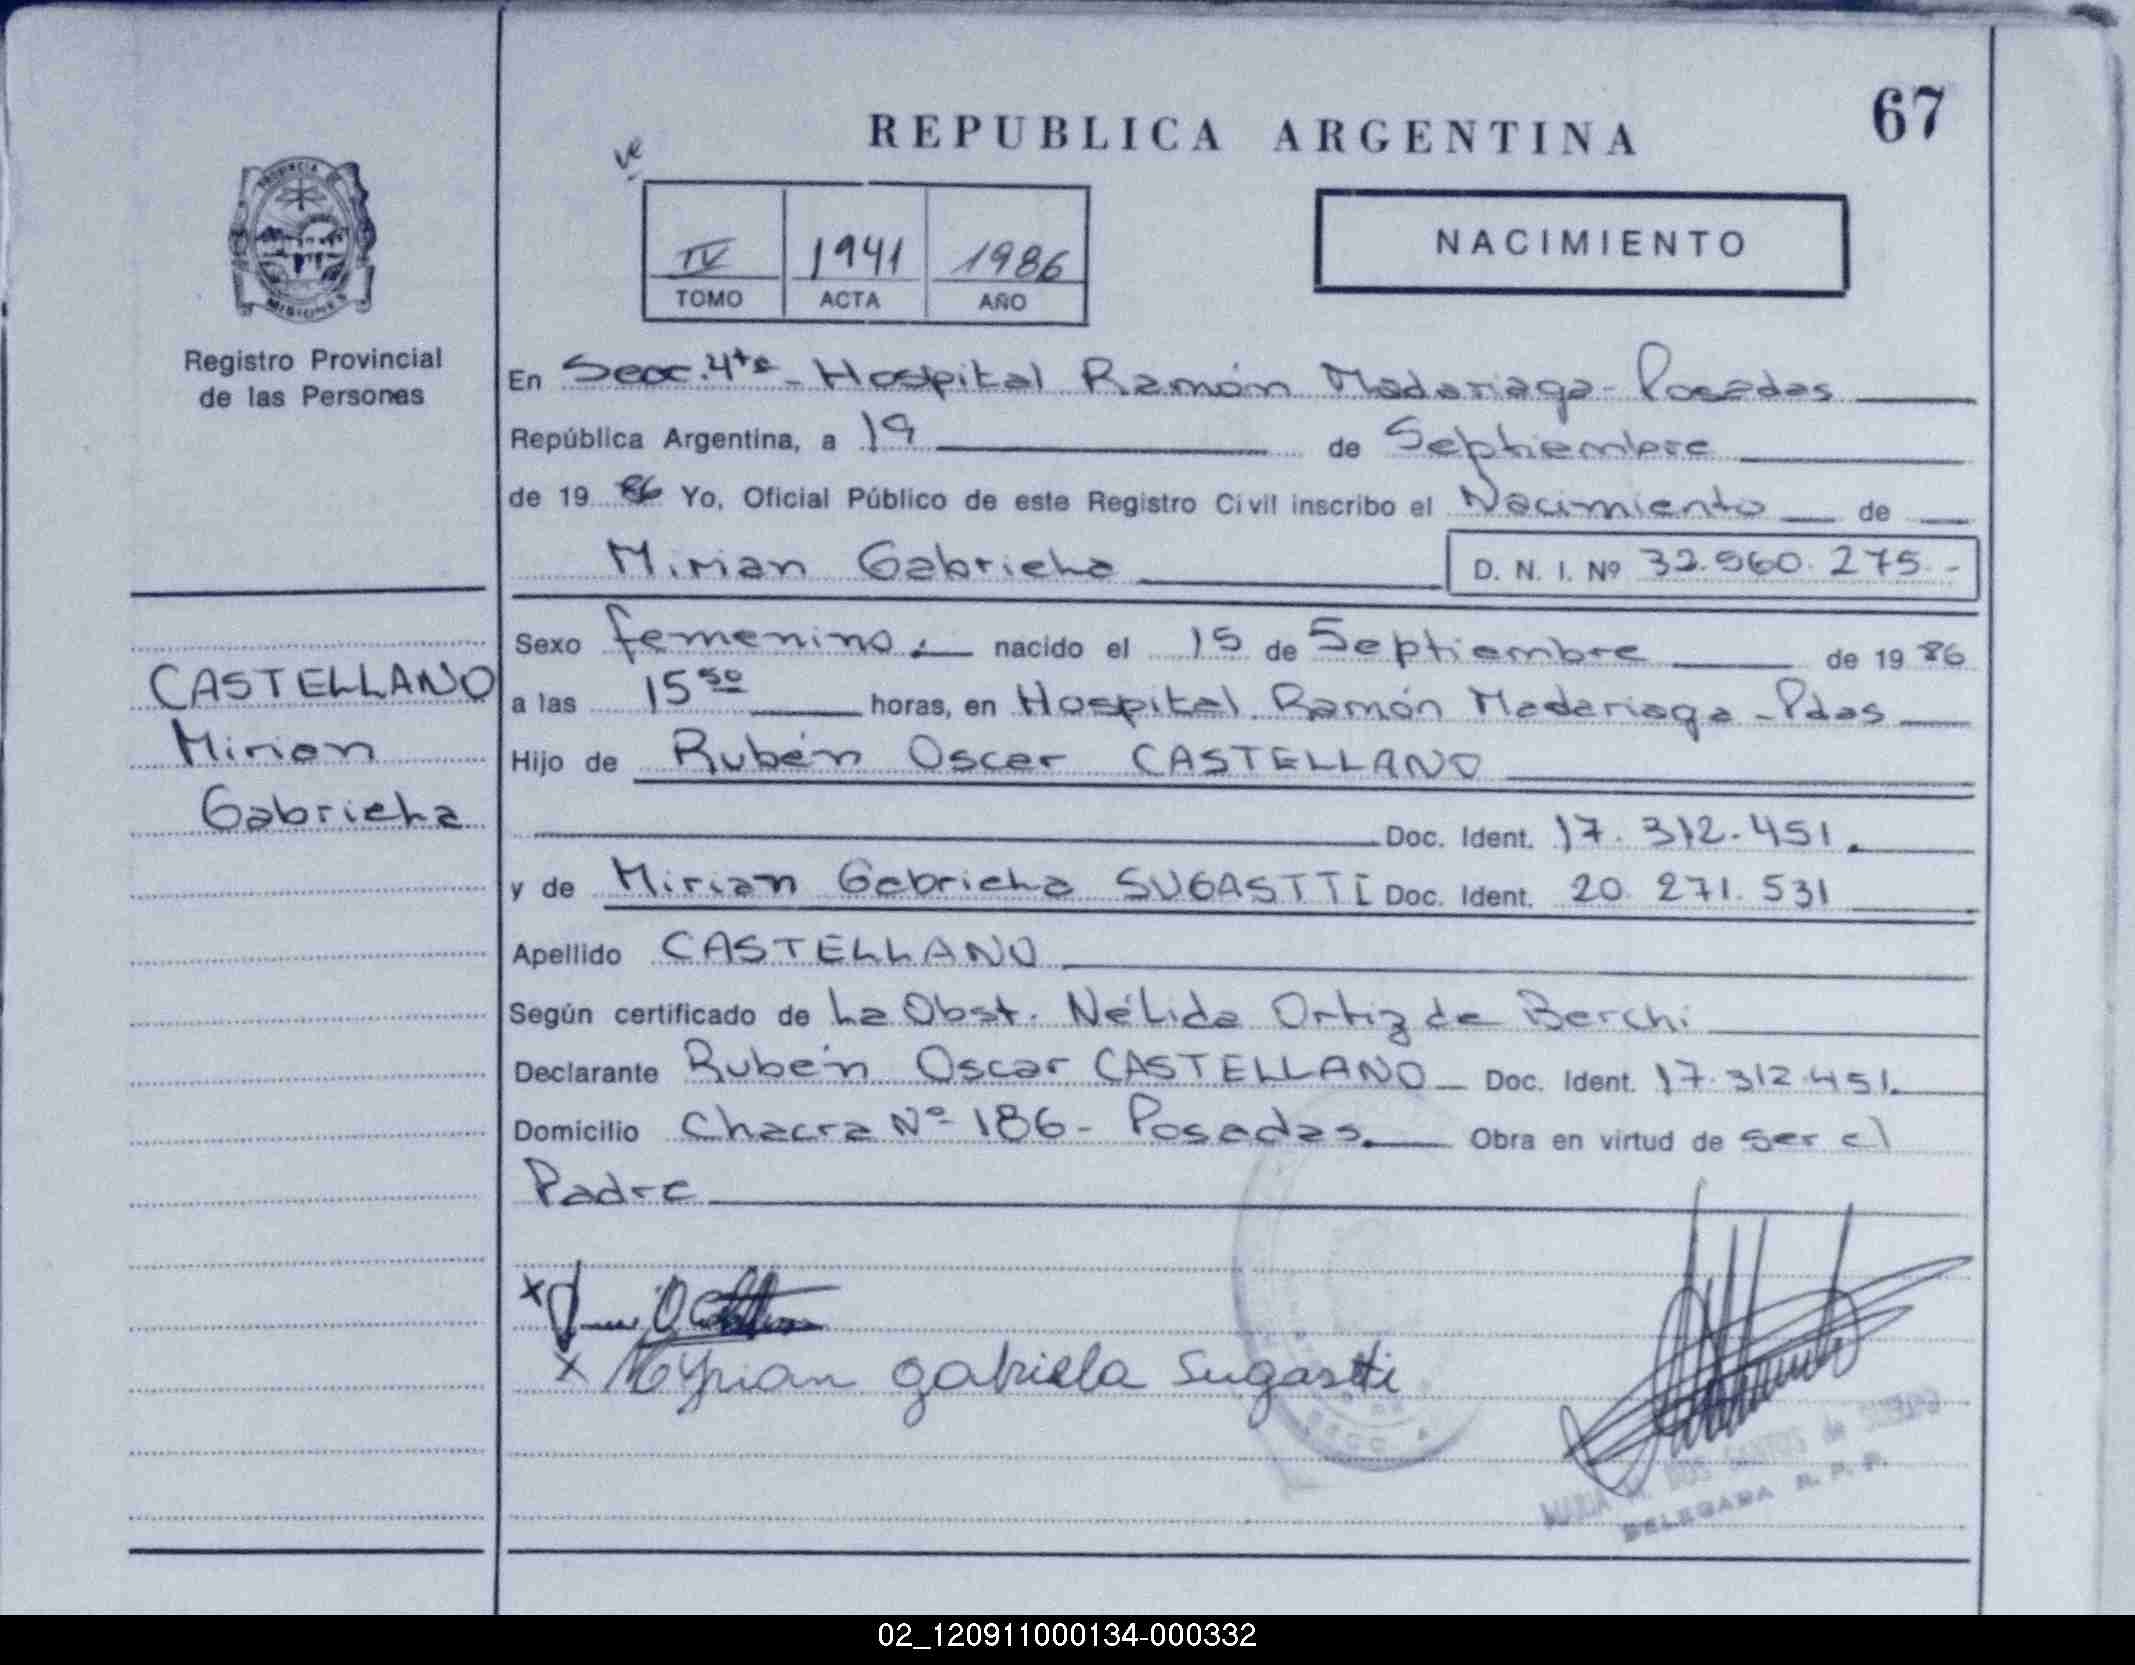 67
REPUBLICA ARGENTINA
NACIMIENTO
IV 1941 1986
TOMO ACTA AÑO
PROVINCIA DE
MISIONES
Registro Provincial
de las Personas
CASTELLANO
Mirian
Gabriela
En Secc. 4ta - Hospital Ramón Madariaga - Posadas
República Argentina, a 19 de Septiembre
de 1986 Yo, Oficial Público de este Registro Civil inscribo el Nacimiento de
Mirian Gabriela D. N. I. Nº 32.960.275.-
Sexo femenino.- nacido el 15 de Septiembre de 1986
a las 15 50 horas, en Hospital Ramón Madariaga - Pdas
Hijo de Rubén Oscar CASTELLANO
Doc. Ident. 17.312.451.
y de Mirian Gabriela SUGASTTI Doc. Ident. 20.271.531
Apellido CASTELLANO
Según certificado de La Obst. Nélida Ortiz de Berchi
Declarante Rubén Oscar CASTELLANO - Doc. Ident. 17.312.451.
Domicilio Chacra Nº 186 - Posadas. Obra en virtud de ser el
Padre
x
x Myrian gabriela Sugastti
MARIA M. DOS SANTOS de
DELEGADA R. P. P.
02_120911000134-000332